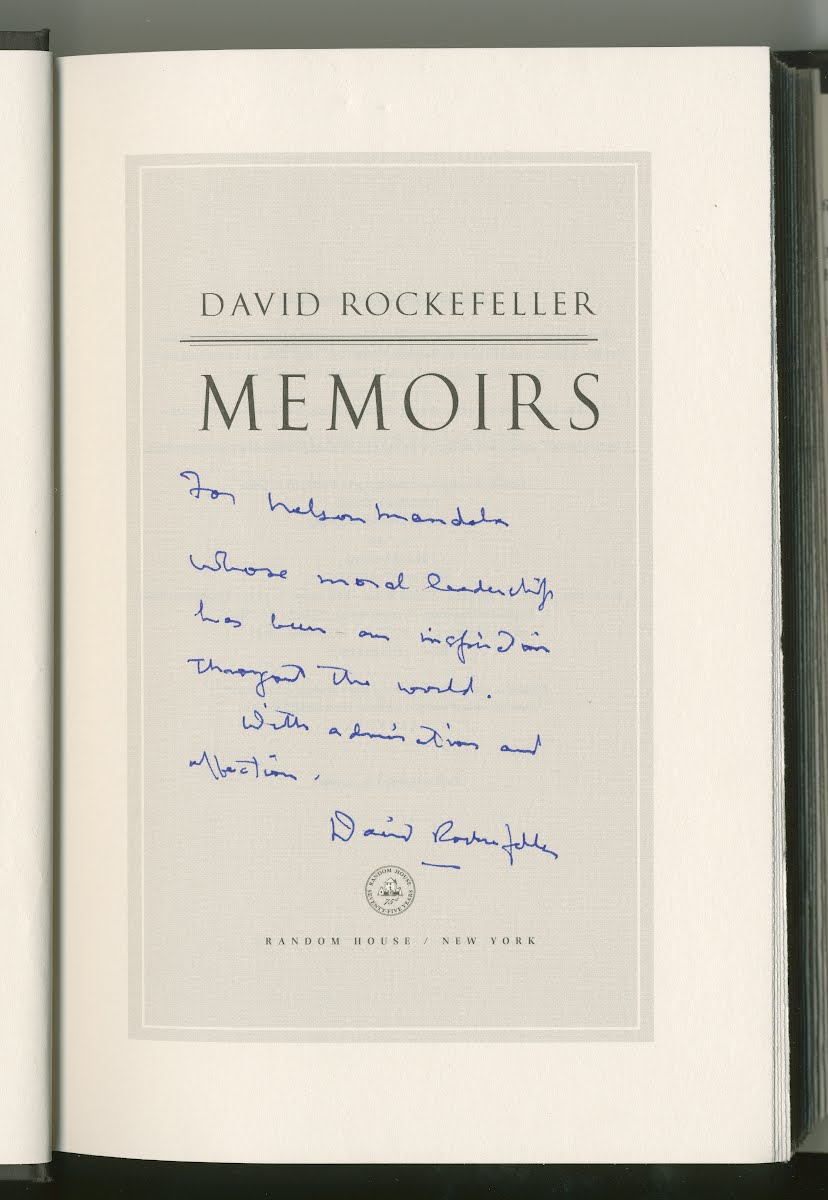 DAVID ROCKEFELLER
MEMOIRS
For Nelson Mandela
whose moral leadership
has been an inspiration
througout the world.
With admiration and
affection.
David Rockefeller
RANDOM HOUSE
75
SEVENTY-FIVE YEARS
RANDOM HOUSE / NEW YORK